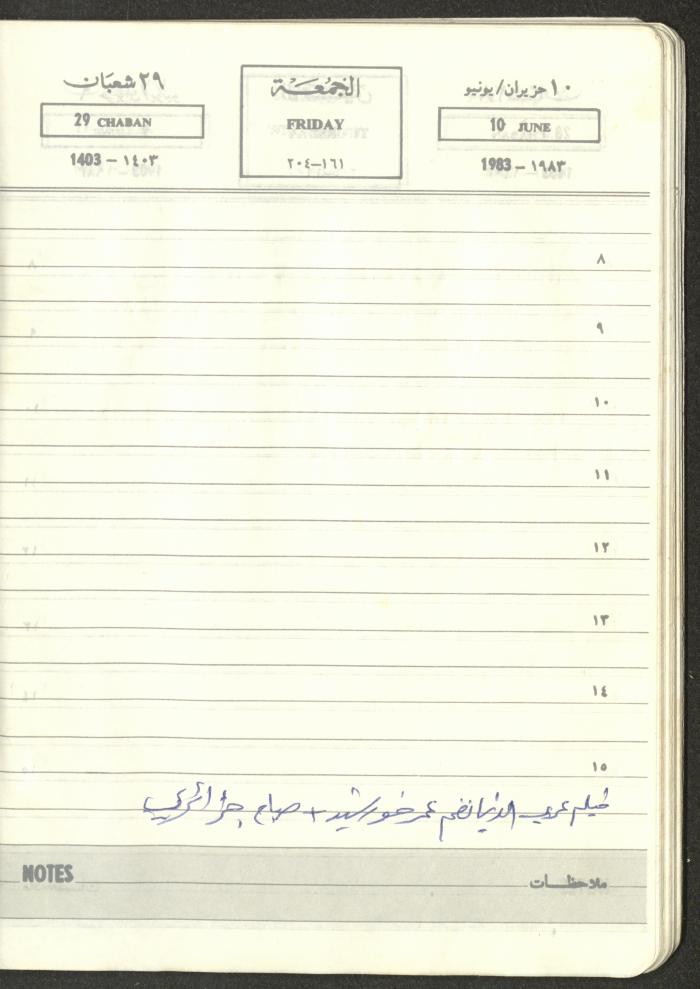 ٢٩ شعبان
الجمعة
١٠ حزيران/يونيو
29 CHABAN
FRIDAY
10 JUNE
1403 – ١٤٠٣
٢٠٤–١٦١
1983 – ١٩٨٣
٨
٩
١٠
١١
١٢
١٣
١٤
١٥
فيلم عربي الدنيا نغم عمر خورشيد + صباح جزائري
NOTES
ملاحظات